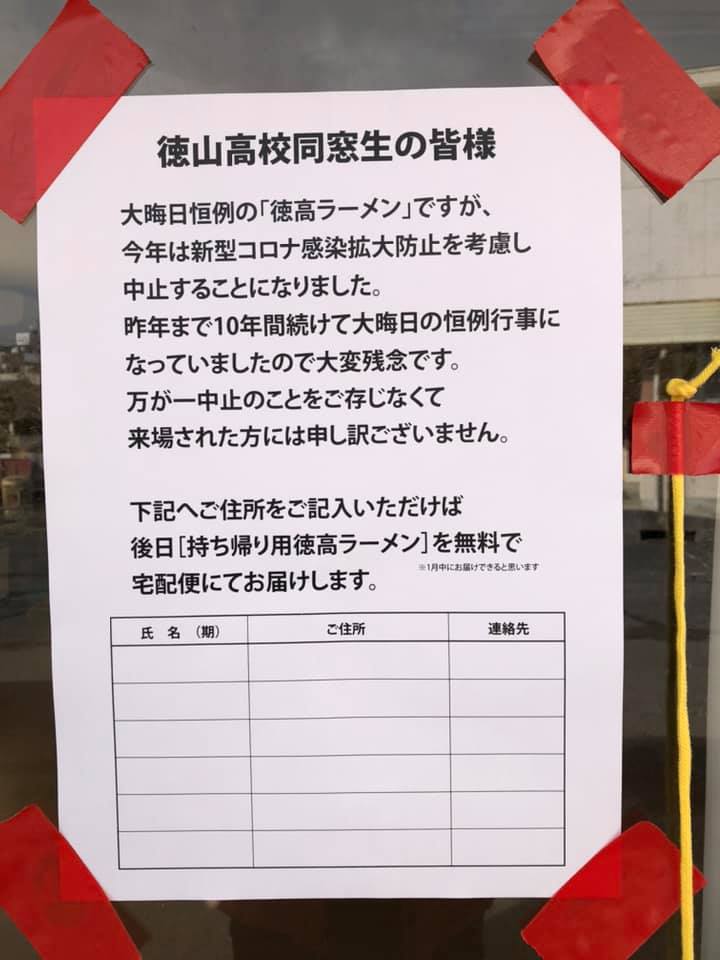 徳山高校同窓生の皆様
大晦日恒例の「徳高ラーメン」ですが、
今年は新型コロナ感染拡大防止を考慮し
中止することになりました。
昨年まで10年間続けて大晦日の恒例行事に
なっていましたので大変残念です。
万が一中止のことをご存じなくて
来場された方には申し訳ございません。
下記へご住所をご記入いただけば
後日[持ち帰り用徳高ラーメン]を無料で
宅配便にてお届けします。
※1月中にお届けできると思います
氏 名 （期）
ご住所
連絡先